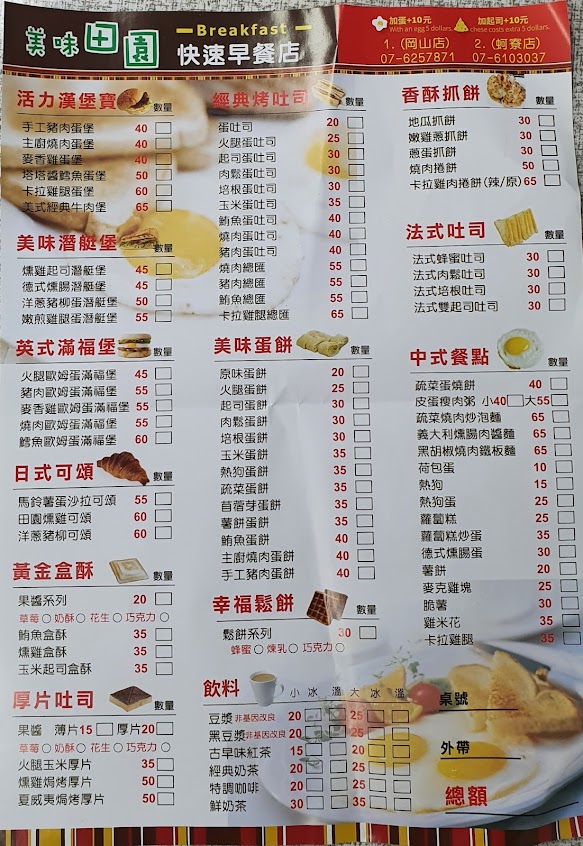 美味田園
Breakfast
快速早餐店
加蛋+10元
With an egg 5 dollars.
加起司+10元
chese costs extra 5 dollars.
1.(岡山店)
07-6257871
2.(蚵寮店)
07-6103037
活力漢堡寶 數量
手工豬肉蛋堡 40
主廚燒肉蛋堡 40
麥香雞蛋堡 40
塔塔醬鱈魚蛋堡 50
卡拉雞腿蛋堡 60
美式經典牛肉堡 65
美味潛艇堡 數量
燻雞起司潛艇堡 45
德式燻腸潛艇堡 45
洋蔥豬柳蛋潛艇堡 50
嫩煎雞腿蛋潛艇堡 55
英式滿福堡 數量
火腿歐姆蛋滿福堡 45
豬肉歐姆蛋滿福堡 55
麥香雞歐姆蛋滿福堡 55
燒肉歐姆蛋滿福堡 55
鱈魚歐姆蛋滿福堡 60
日式可頌 數量
馬鈴薯蛋沙拉可頌 55
田園燻雞可頌 60
洋蔥豬柳可頌 60
黃金盒酥 數量
果醬系列 20
草莓○ 奶酥○ 花生○ 巧克力○
鮪魚盒酥 35
燻雞盒酥 35
玉米起司盒酥 35
厚片吐司 數量
果醬 薄片15 厚片20
草莓○ 奶酥○ 花生○ 巧克力○
火腿玉米厚片 35
燻雞焗烤厚片 50
夏威夷焗烤厚片 50
經典烤吐司 數量
蛋吐司 20
火腿蛋吐司 25
起司蛋吐司 30
肉鬆蛋吐司 30
培根蛋吐司 30
玉米蛋吐司 35
鮪魚蛋吐司 40
燒肉蛋吐司 40
豬肉蛋吐司 40
燒肉總匯 55
豬肉總匯 55
鮪魚總匯 55
卡拉雞腿總匯 65
美味蛋餅 數量
原味蛋餅 20
火腿蛋餅 25
起司蛋餅 30
肉鬆蛋餅 30
培根蛋餅 30
玉米蛋餅 35
熱狗蛋餅 35
蔬菜蛋餅 35
苜蓿芽蛋餅 35
薯餅蛋餅 35
鮪魚蛋餅 40
主廚燒肉蛋餅 40
手工豬肉蛋餅 40
幸福鬆餅 數量
鬆餅系列 30
蜂蜜○ 煉乳○ 巧克力○
飲料 小 冰 溫 大 冰 溫
豆漿非基因改良 20 25
黑豆漿非基因改良 20 25
古早味紅茶 15 20
經典奶茶 20 25
特調咖啡 20 25
鮮奶茶 30 35
香酥抓餅 數量
地瓜抓餅 30
嫩雞蔥抓餅 30
蔥蛋抓餅 30
燒肉捲餅 50
卡拉雞肉捲餅(辣/原) 65
法式吐司 數量
法式蜂蜜吐司 30
法式肉鬆吐司 30
法式培根吐司 30
法式雙起司吐司 30
中式餐點 數量
蔬菜蛋燒餅 40
皮蛋瘦肉粥 小40 大55
蔬菜燒肉炒泡麵 65
義大利燻腸肉醬麵 65
黑胡椒燒肉鐵板麵 65
荷包蛋 10
熱狗 15
熱狗蛋 25
蘿蔔糕 25
蘿蔔糕炒蛋 35
德式燻腸蛋 30
薯餅 20
麥克雞塊 25
脆薯 30
雞米花 35
卡拉雞腿 35
桌號
外帶
總額